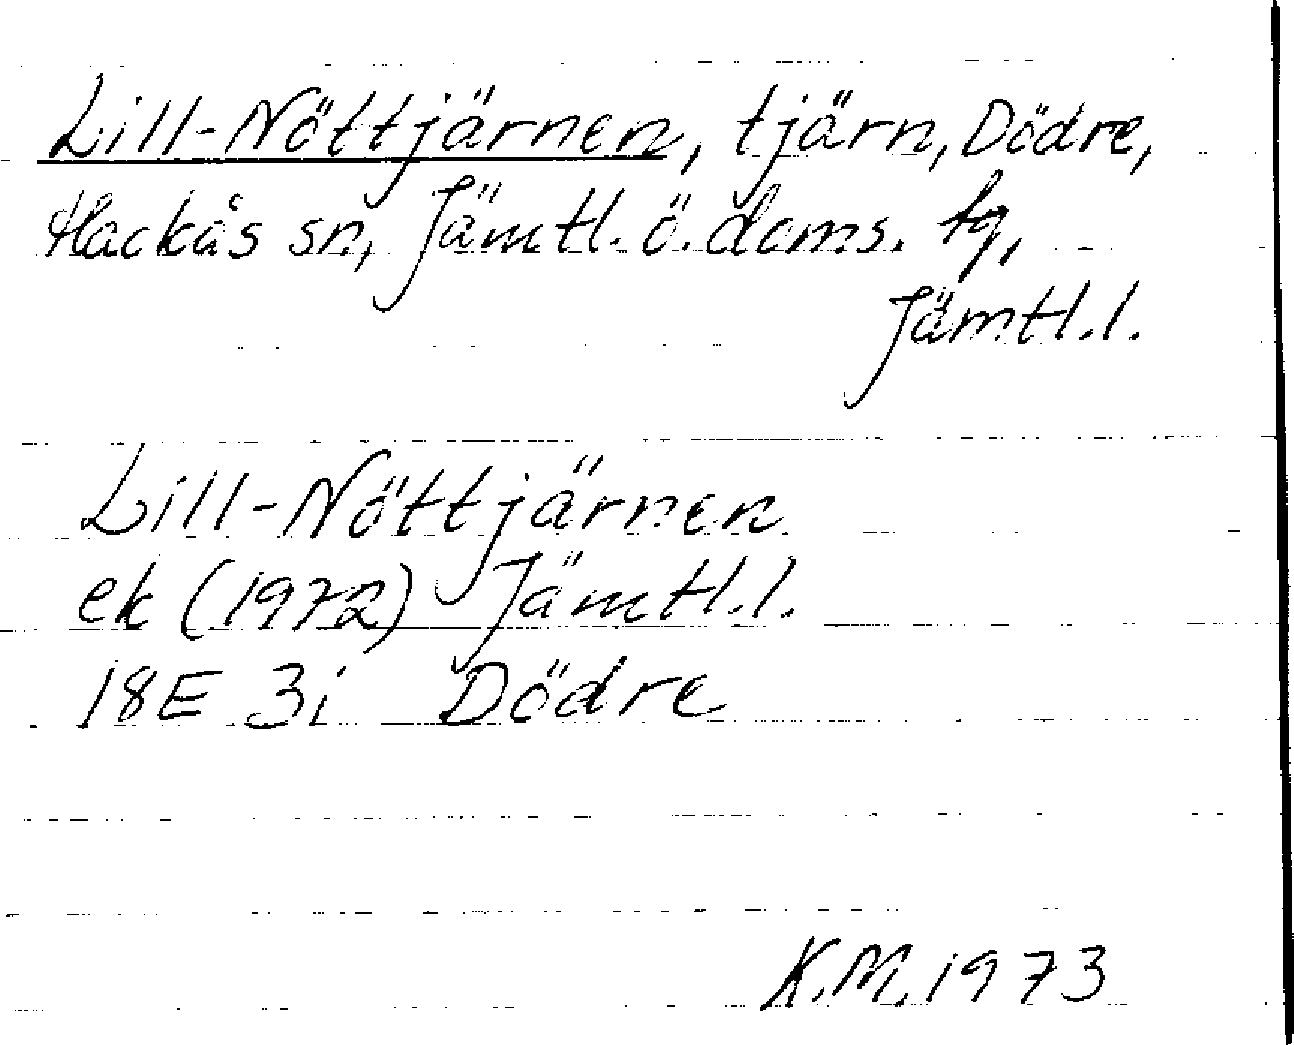 Lill-Nöttjärnen, tjärn, Dödre,
Hackås sn, Jämtl. ö. doms. tg,
Jämtl.l.
Lill-Nöttjärnen
ek (1972) Jämtl.l.
18E 3i Dödre
K.M. 1973